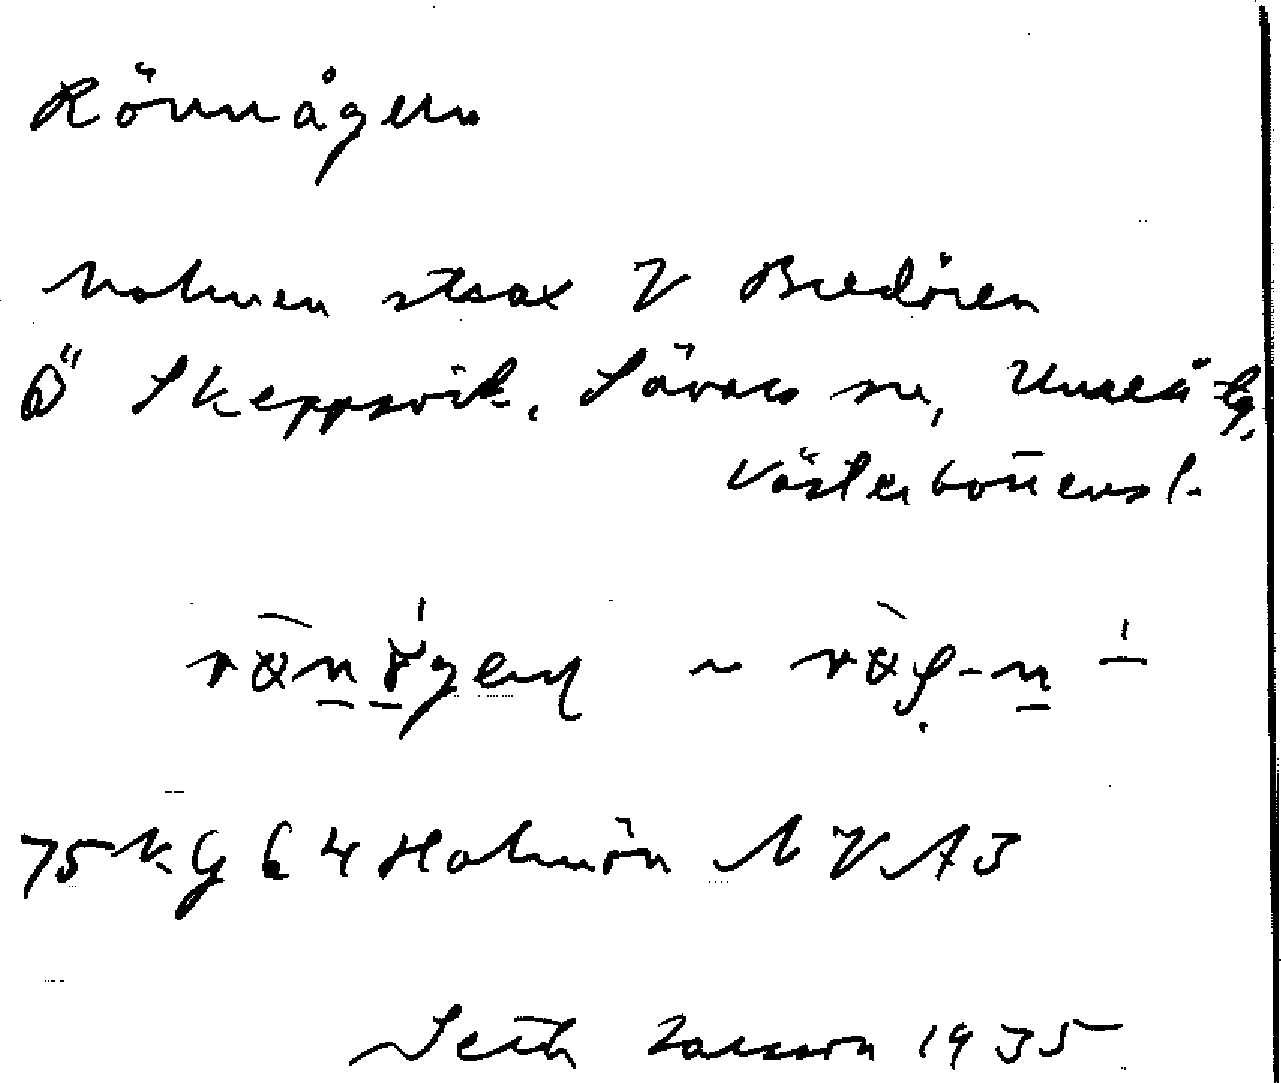 Rönnågern
holmen strax V Bredören
Ö Skeppsvik, Sävars sn, Umeå tg,
Västerbottens l.
75 N-g 64 Holmön NV A3
Seth Larsson 1935